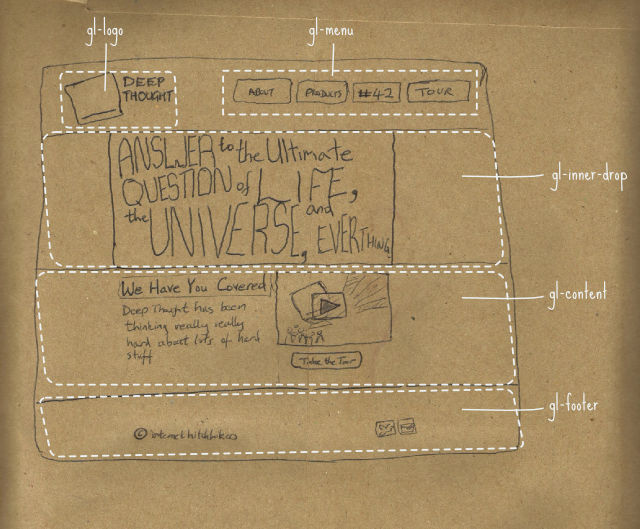 gl-logo
gl-menu
DEEP
THOUGHT
ABOUT
PRODUCTS
#42
TOUR
ANSWER to the Ultimate
QUESTION of LIFE,
the UNIVERSE, and
EVERYTHING
gl-inner-drop
We Have You Covered
Deep Thought has been
thinking really really
hard about lots of hard
stuff
Take the Tour
gl-content
gl-footer
©